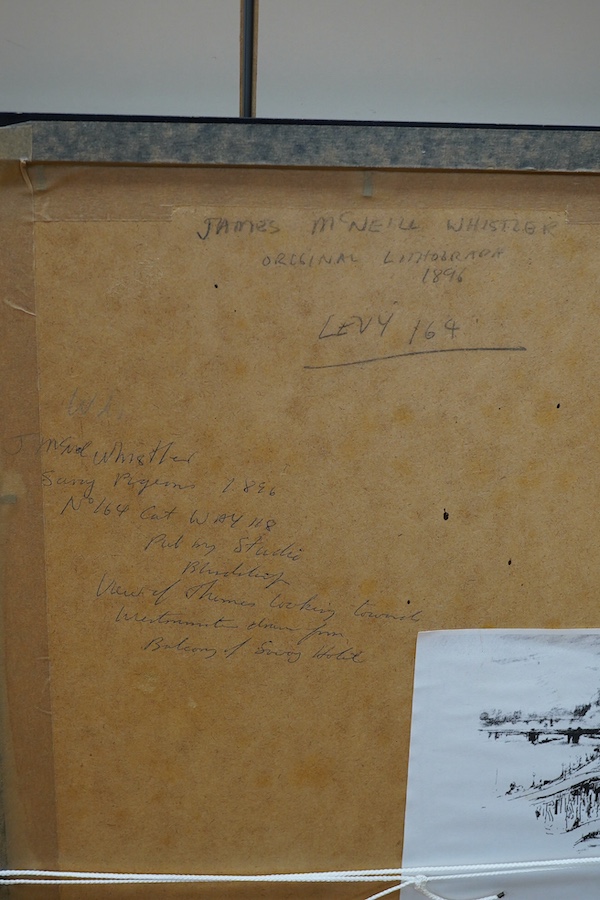 JAMES MCNEILL WHISTLER
ORIGINAL LITHOGRAPH
1896
LEVY 164
J McNeil Whistler
Savoy Pigeons 1896
No 164 Cat WAY 118
Pub in Studio
View of Thames looking towards
Westminster down from
Balcony of Savoy Hotel